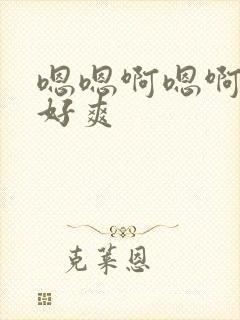 嗯嗯啊嗯啊
好爽
克莱恩